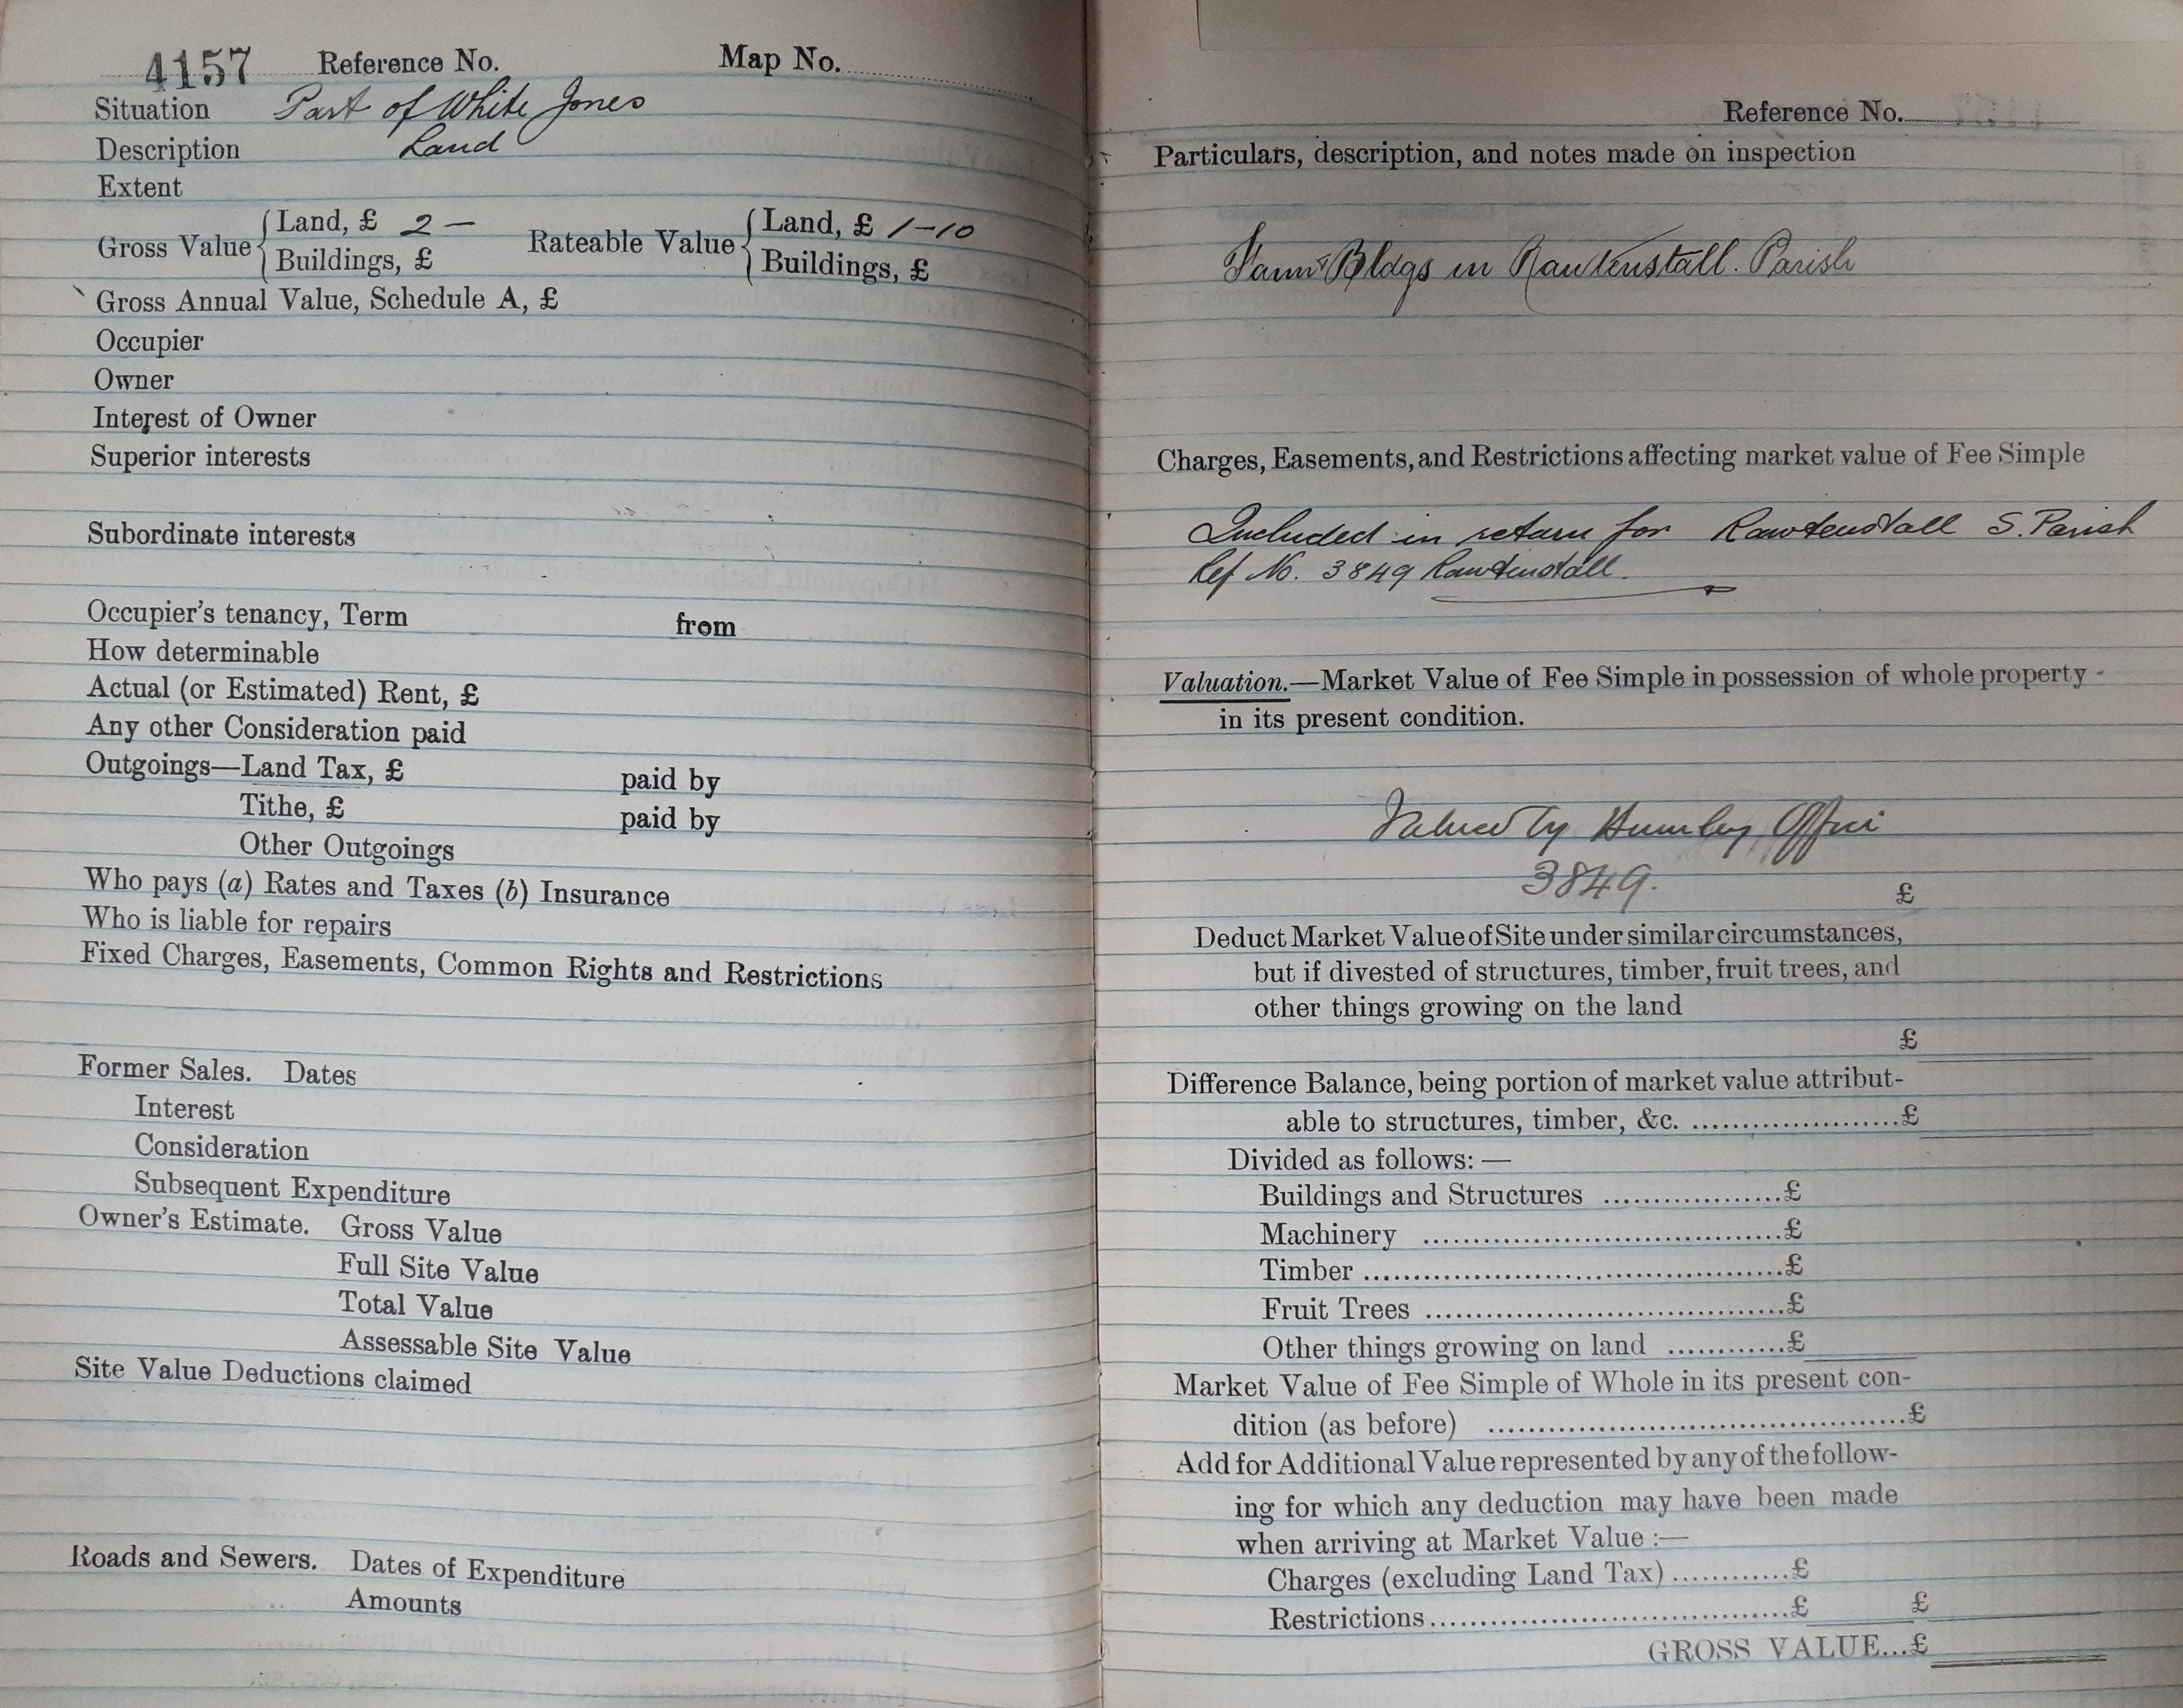 4157 Reference No. Map No.
Situation Part of White Jones
Description Land
Extent
Gross Value { Land, £ 2 — Rateable Value { Land, £ 1-10
Buildings, £ Buildings, £
Gross Annual Value, Schedule A, £
Occupier
Owner
Interest of Owner
Superior interests
Subordinate interests
Occupier's tenancy, Term from
How determinable
Actual (or Estimated) Rent, £
Any other Consideration paid
Outgoings—Land Tax, £ paid by
Tithe, £ paid by
Other Outgoings
Who pays (a) Rates and Taxes (b) Insurance
Who is liable for repairs
Fixed Charges, Easements, Common Rights and Restrictions
Former Sales. Dates
Interest
Consideration
Subsequent Expenditure
Owner's Estimate. Gross Value
Full Site Value
Total Value
Assessable Site Value
Site Value Deductions claimed
Roads and Sewers. Dates of Expenditure
Amounts
Reference No.
Particulars, description, and notes made on inspection
Farm Bldgs in Rawtenstall. Parish
Charges, Easements, and Restrictions affecting market value of Fee Simple
Included in return for Rawtenstall S. Parish
Ref No. 3849 Rawtenstall.
Valuation.—Market Value of Fee Simple in possession of whole property
in its present condition.
Valued by Burnley Office
3849.
£
Deduct Market Value of Site under similar circumstances,
but if divested of structures, timber, fruit trees, and
other things growing on the land
£
Difference Balance, being portion of market value attribut-
able to structures, timber, &c. ......................£
Divided as follows: —
Buildings and Structures ..................£
Machinery .....................................£
Timber ...........................................£
Fruit Trees .....................................£
Other things growing on land ............£
Market Value of Fee Simple of Whole in its present con-
dition (as before) ...........................................£
Add for Additional Value represented by any of the follow-
ing for which any deduction may have been made
when arriving at Market Value :—
Charges (excluding Land Tax) ............£
Restrictions.....................................£ £
GROSS VALUE...£